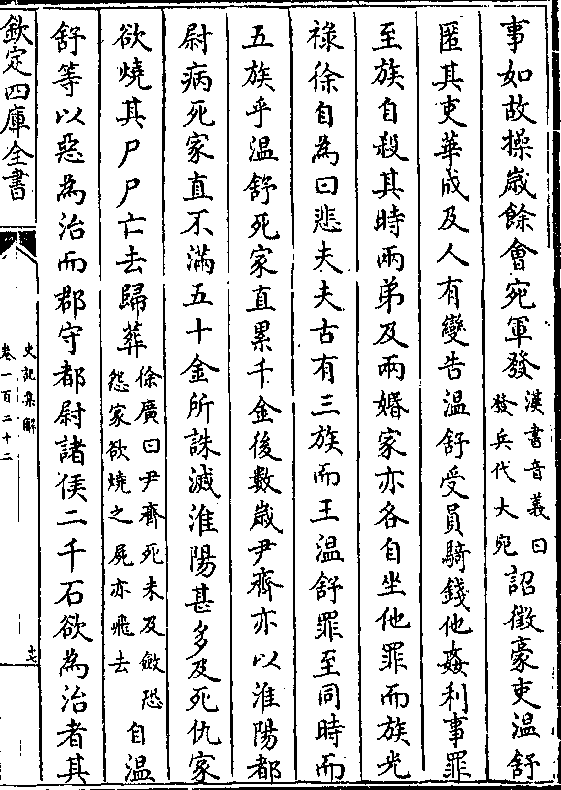 事如故操歲餘會宛軍發漢書音義曰發兵伐大宛詔徵豪吏温舒
匿其吏華成及人有變告温舒受員騎錢他姦利事罪
至族自殺其時兩弟及兩婚家亦各自坐他罪而族光
祿徐自為曰悲夫夫古有三族而王温舒罪至同時而
五族乎温舒死家直累千金後數歲尹齊亦以淮陽都
尉病死家直不滿五十金所誅滅淮陽甚多及死仇家
欲燒其尸尸亡去歸葬徐廣曰尹齊死未及斂恐怨家欲燒之屍亦飛去自温
舒等以惡為治而郡守都尉諸侯二千石欲為治者其
欽定四庫全書
史記集解
卷一百二十二
十七